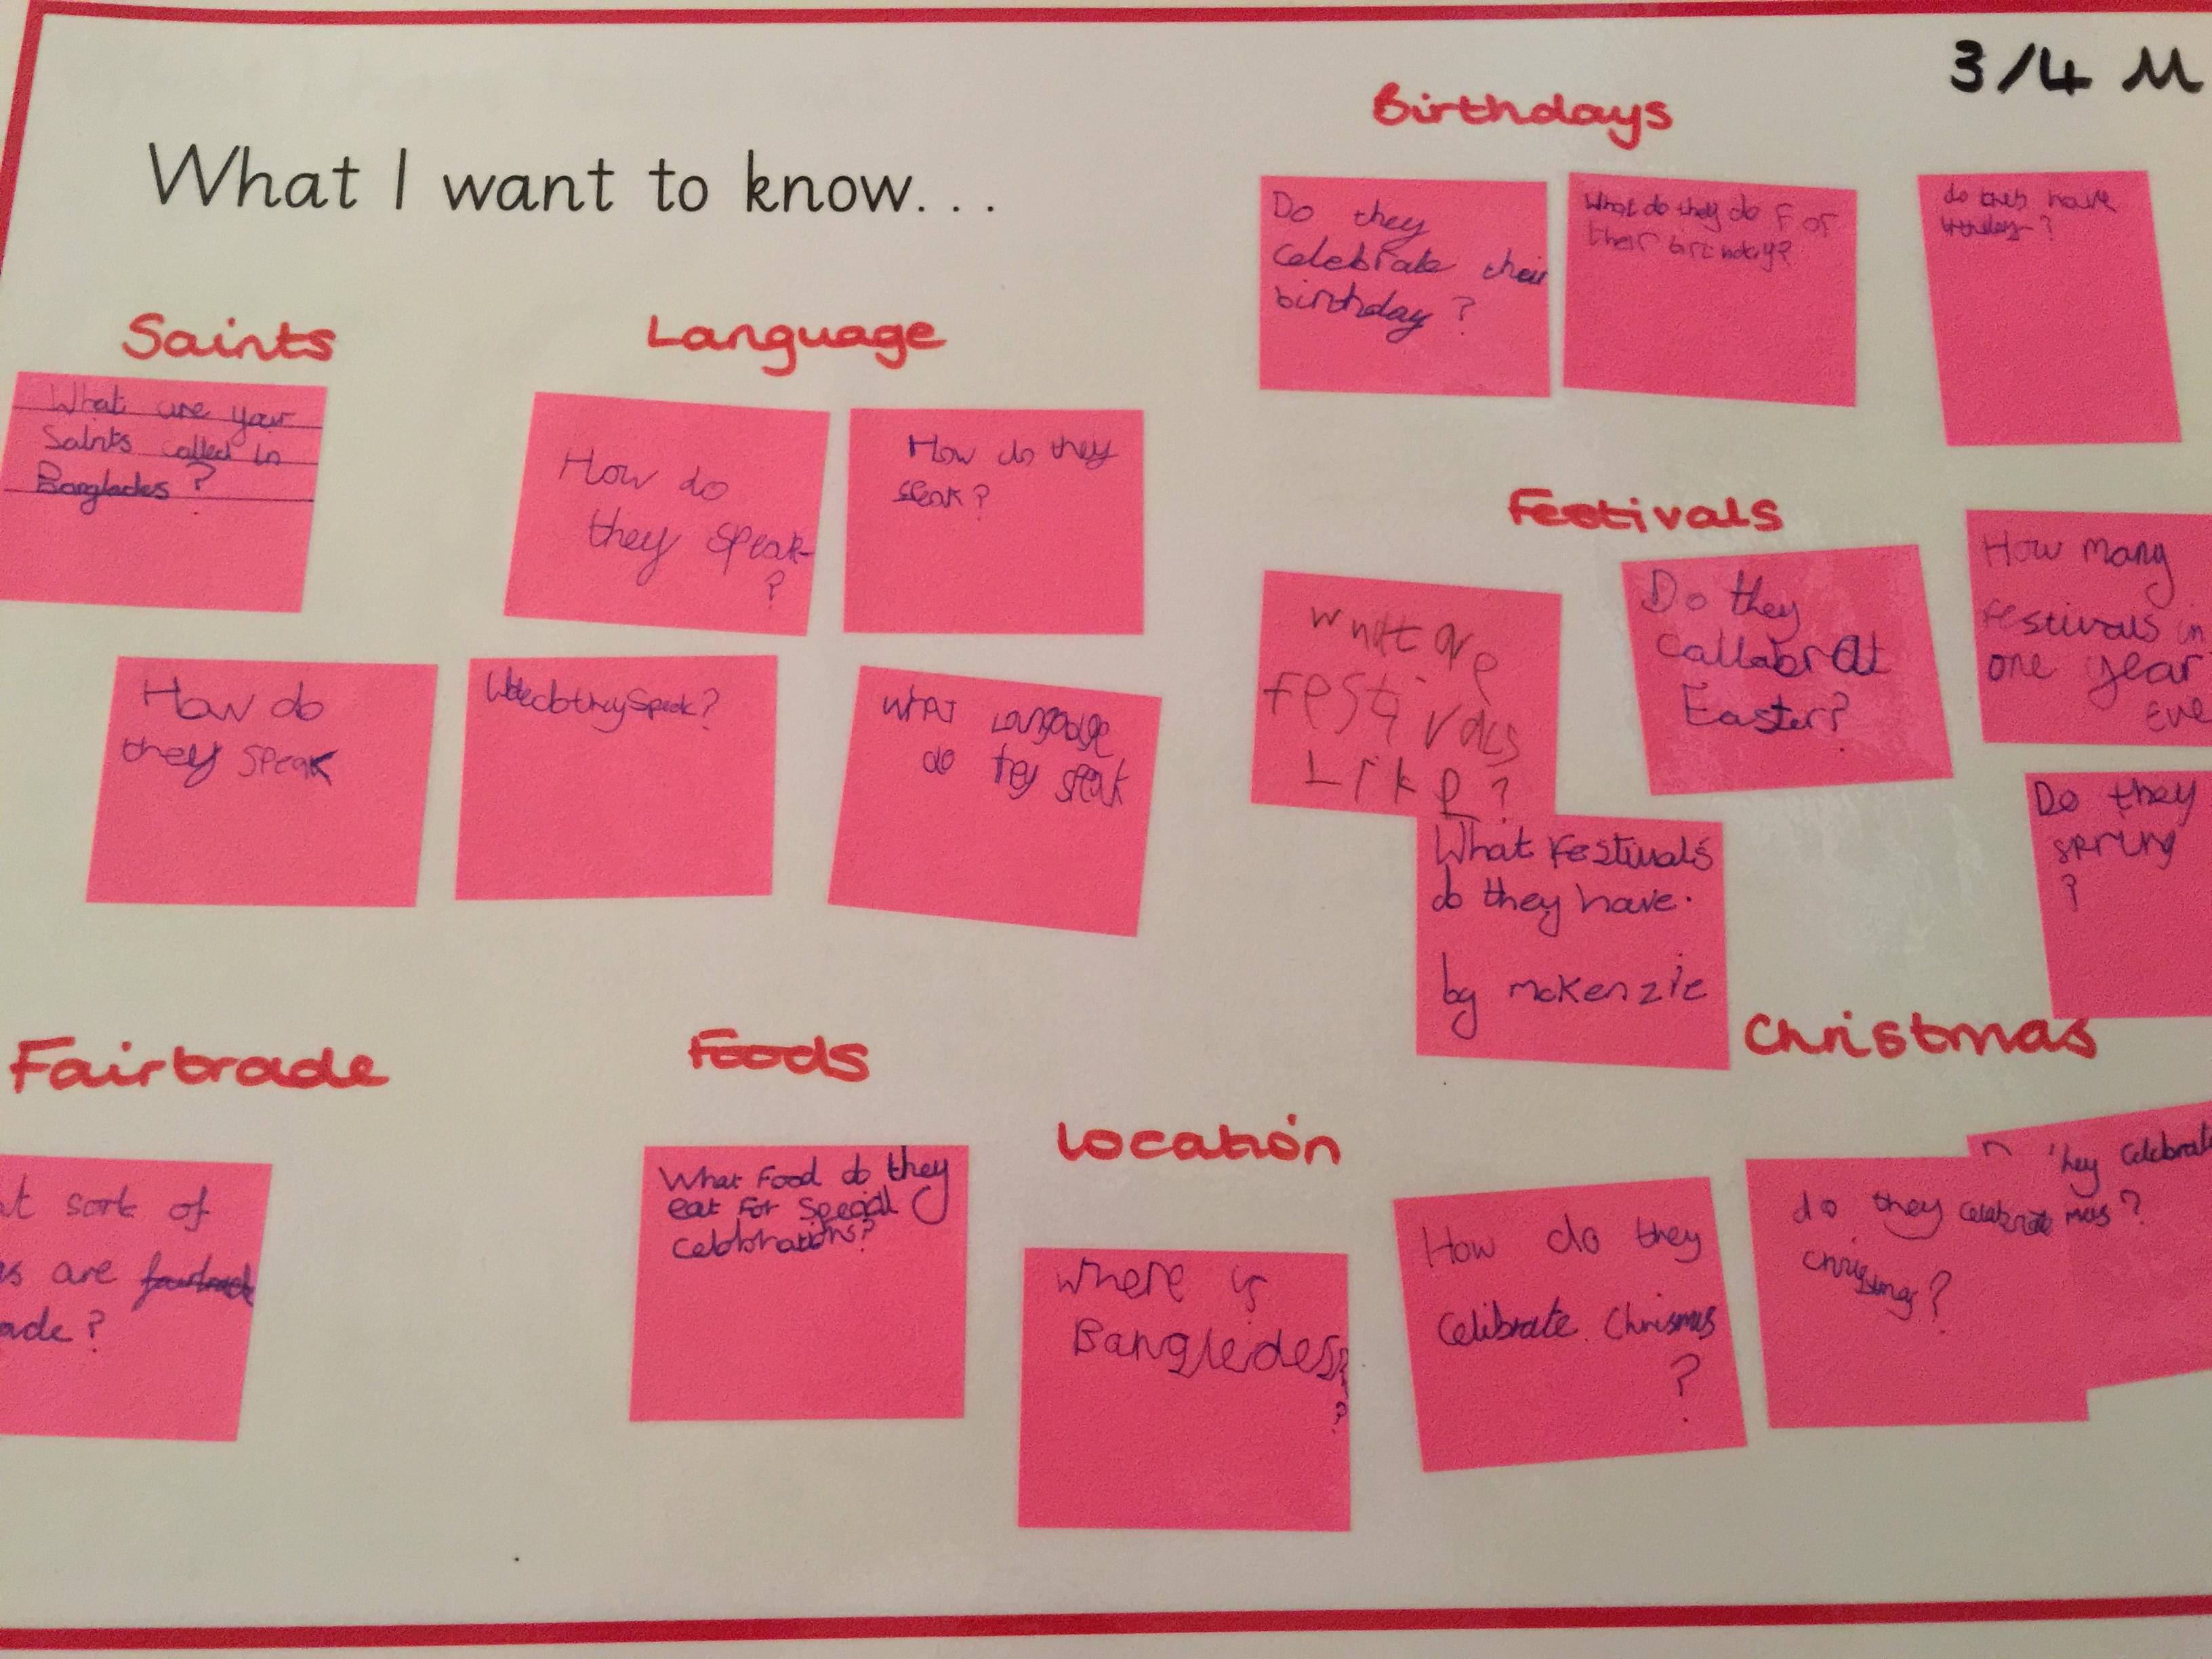 3/4 M
What I want to know...
Birthdays
Do they
celebrate their
birthday?
What do they do For
their birthday?
do they have
Saints
What are your
Saints called in
Banglades?
Language
How do
they speak
?
How do they
speak?
How do
they speak
do they speak?
WhAT Language
do they speak
Festivals
what are
festivals
Like?
Do they
callabrat
Easter?
How many
festivals in
one year
Eve
Do they
spring
?
What Festivals
do they have.
by mckenzie
Fairtrade
at sort of
s are
ade?
Foods
What Food do they
eat For special
Location
where is
Christmas
How do they
Celibrate Chrismas
?
do they celebrate
chrisstmas?
hey Celebrat
mas?